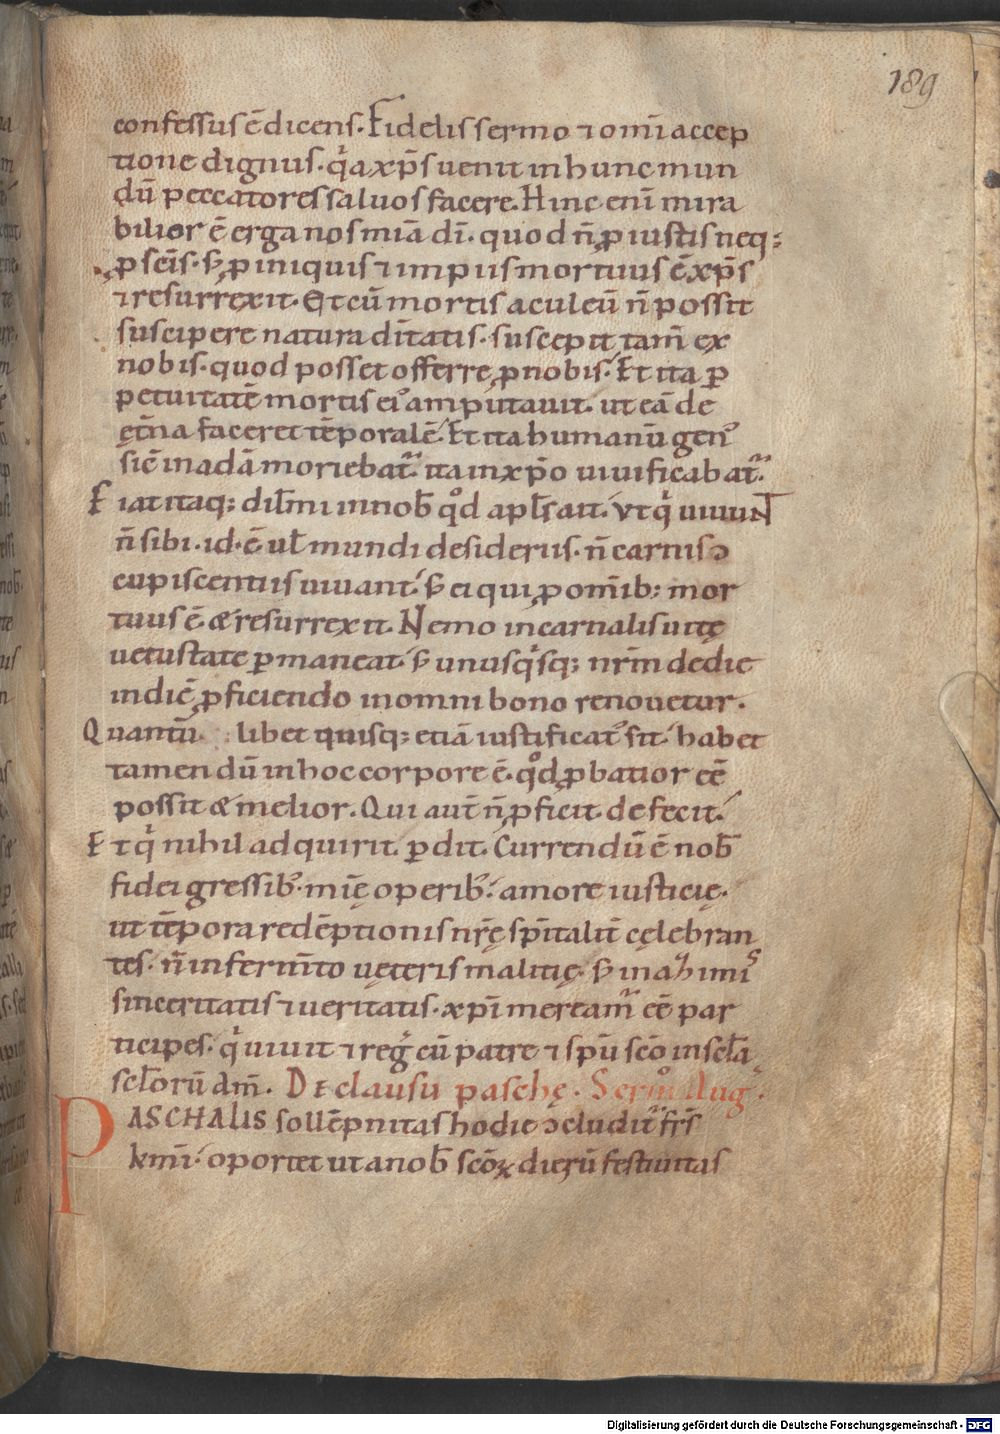 189
confessus ē dicens. Fidelis sermo ⁊ om̄i accep
tione dignus. qͥa xp̄s uenit in hunc mun
dū peccatores saluos facere. Hinc eni᷒ mira
bilior ē erga nos mīa dī. quod n̄ ꝓ iustis neq;
ꝓ scīs. s; ꝓ iniquis ⁊ impiis mortuus ē xp̄s
⁊ resurrexit. Et cū mortis aculeū n̄ possit
suscipere natura diūtatis. suscepit tam̄ ex
nobis. quod posset offerre ꝓ nobis. Et ita ꝑ
petuitatē mortis eiꝰ amputauit. ut eā de
ęt̄na faceret tēporalē. Et ita humanū genꝰ
sic̄ in adā moriebat᷑. ita in xp̄o uiuificabat᷑.
Fiat itaq; dil̄mi in nob̄ qͦd apl̄s ait. vt qͥ uiuuNT
n̄ sibi. id. ē. ul̄ mundi desideriis. n̄ carnis ↄ
cupiscentiis uiuant. s; ei qui ꝓ om̄ib; mor
tuus ē. & resurrexit. Nemo in carnalis uitę
uetustate ꝑmaneat. s; unusqͥsq; nr̄m de die
in diē ꝓficiendo in omni bono renouetur.
Quantū libet quisq; etiā iustificatꝰ sit. habet
tamen dū in hoc corpore ē. qͦd ꝓbatior ēē
possit & melior. Qui aut̄ n̄ ꝓficit. defecit.
Et qͥ nihil adquirit. ꝑdit. Currendū ē nob̄
fidei gressibꝰ. mīę operibꝰ. amore iusticię.
ut tēpora redēptionis nr̄ę sp̄italit̄ cęlebran
tes. n̄ in fermn̄to uęteris malitię. s; in aꝫimis
sinceritatis ⁊ ueritatis. xp̄i meream᷑ ēē par
ticipes. qͥ uiuit ⁊ regͣ cū patre ⁊ sp̄u scō in scl̄a
scl̄orū am̄. De clausu paschę. Sermͦ Aug.
PASCHALIS sollēpnitas hodie ↄcludit᷑ fr̄s
km̄i. oportet ut a nob̄ scōꝝ dierū festiuitas
Digitalisierung gefördert durch die Deutsche Forschungsgemeinschaft - DFG